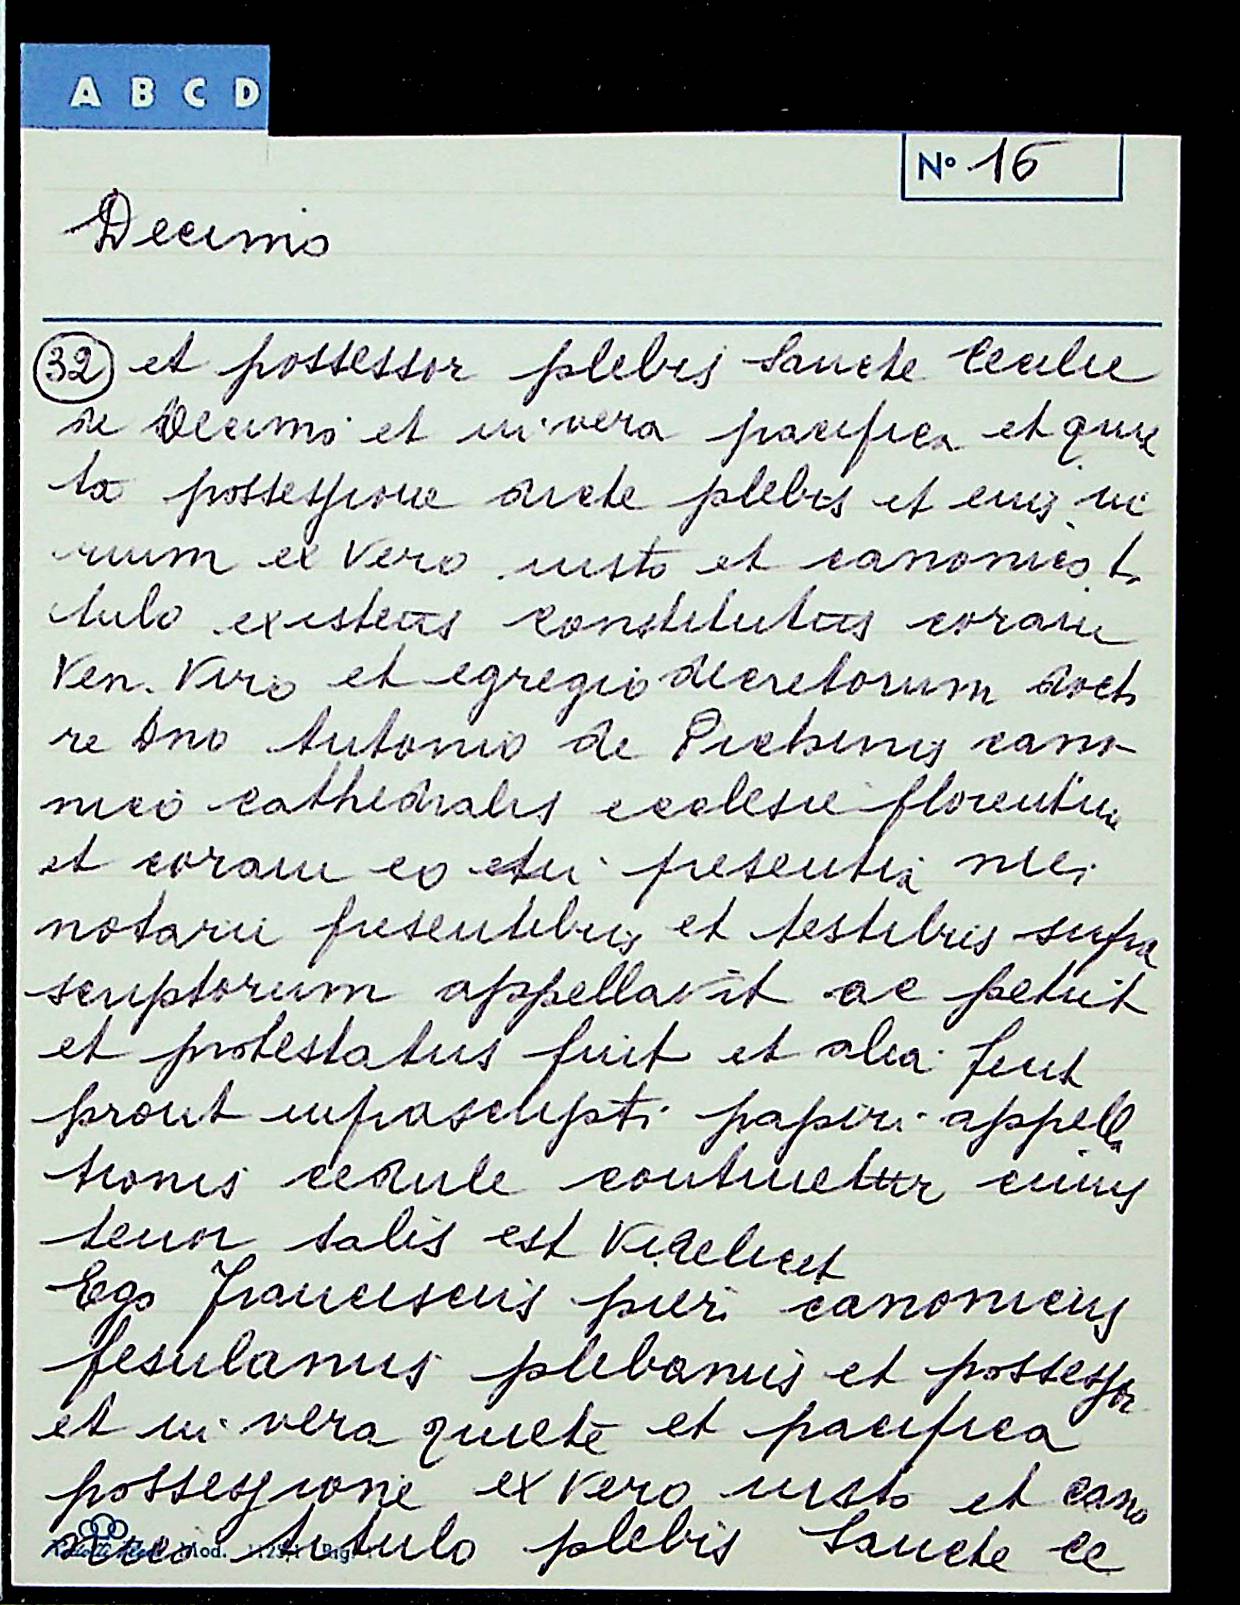 A B C D
N° 16
Decimo
32 et possessor plebis Sancte Cecilie
de Decimo et in vera pacifica et quie
ta possessione dicte plebis et eius iu
rium ex vero iusto et canonico ti
tulo existens constitutus coram
Ven. Viro et egregio decretorum docto
re Dno Antonio de Picchinis cano
nico cathedralis ecclesie florentine
et coram eo et in presentia mei
notarii presentibus et testibus supra
scriptorum appellavit ac petiit
et protestatus fuit et alia fecit
prout infrascripti papiri appella
tionis cedule continetur cuius
tenor talis est Videlicet
Ego Franciscus pieri canonicus
fesulanus plebanus et possessor
et in vera quiete et pacifica
possessione ex vero iusto et cano
nico titulo plebis Sancte Ce
Mod.